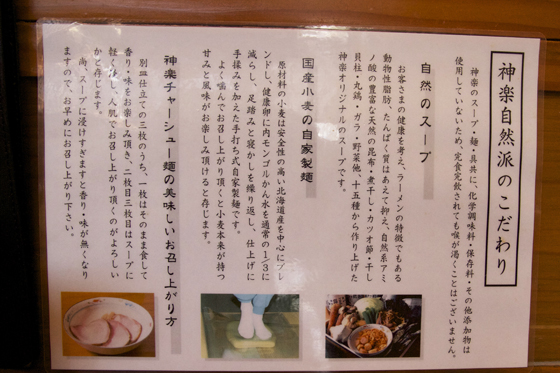 神楽自然派のこだわり
神楽のスープ・麺・具共に、化学調味料・保存料・その他添加物は
使用していないため、完食完飲されても喉が渇くことはございません。
自然のスープ
お客さまの健康を考え、ラーメンの特徴でもある
動物性脂肪、たんぱく質はあえて抑え、自然系アミ
ノ酸の豊富な天然の昆布・煮干し・カツオ節・干し
貝柱・丸鶏・ガラ・野菜他、十五種から作り上げた
神楽オリジナルのスープです。
国産小麦の自家製麺
原材料の小麦は安全性の高い北海道産を中心にブレ
ンドし、健康卵に内モンゴルかん水を通常の1/3に
減らし、足踏みと寝かしを繰り返し、仕上げに
手揉みを加えた手打ち式自家製麺です。
よく噛んでお召し上がり頂くと小麦本来が持つ
甘みと風味がお楽しみ頂けると存じます。
神楽チャーシュー麺の美味しいお召し上がり方
別皿仕立ての三枚のうち、一枚はそのまま食して
香り・味をお楽しみ頂き、二枚目三枚目はスープに
軽く浸し、人肌でお召し上がり頂くのがよろしい
かと存じます。
尚、スープに浸けすぎますと香り・味が無くなり
ますので、お早めにお召し上がり下さい。